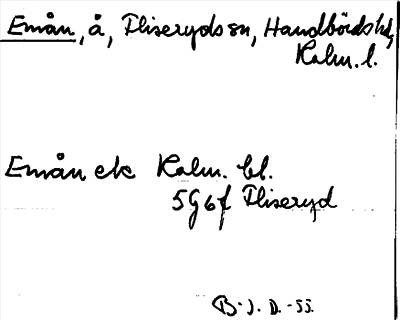 Emån, å, Fliseryds sn, Handbörds hd,
Kalm. l.
Emån ek Kalm. bl.
5G6f Fliseryd
B.J.D.-55.